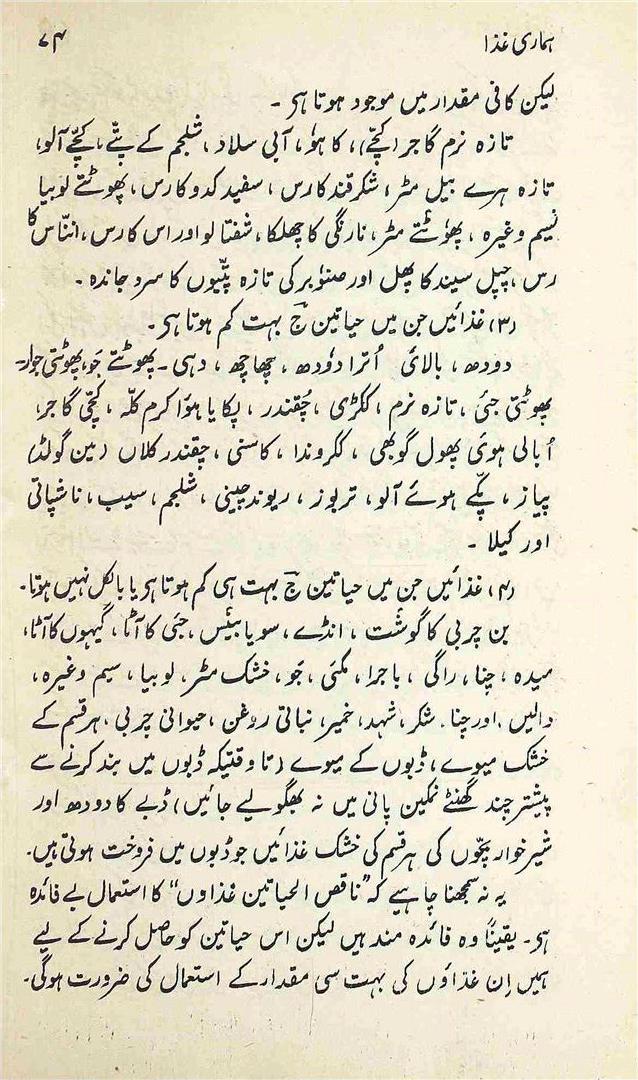 ہماری غذا ۷۴
لیکن کافی مقدار میں موجود ہوتا ہی ۔
تازہ نرم گاجر (کچّے)، کاہو، آبی سلاد، شلجم کے پتّے، کچّے آلو،
تازہ ہرے بیل مٹر، شکرقند کا رس، سفید کدو کا رس، پھوٹتے لوبیا
سیم وغیرہ، پھوٹتے مٹر، نارنگی کا چھلکا، شفتالو اور اس کا رس، اننّاس کا
رس، چپل سیند کا پھل اور صنوبر کی تازہ پتّیوں کا سرد جاندہ۔
(۳) غذائیں جن میں حیاتین جؔ بہت کم ہوتا ہی۔
دودھ، بالائی اُترا دودھ، چھاچھ، دہی۔ پھوٹتے جَو، پھوٹتی جوار۔
پھوٹتی جئی، تازہ نرم، ککڑی، چُقندر، پکایا ہؤا کرم کلّہ، کچّی گاجر،
اُبالی ہوئی پھول گوبھی، ککروندا، کاسنی، چقندر کلاں (مین گولڈ)
پیاز، پکّے ہوئے آلو، تربوز، ریوند چینی، شلجم، سیب، ناشپاتی
اور کیلا ۔
(۴) غذائیں جن میں حیاتین جؔ بہت ہی کم ہوتا ہی یا بالکل نہیں ہوتا۔
بن چربی کا گوشت، انڈے، سویا بینس، جئی کا آٹا، گیہوں کا آٹا،
میدہ، چنا، راگی، باجرا، مکئی، جَو، خشک مٹر، لوبیا، سیم وغیرہ،
دالیں، اور چنا۔ شکر، شہد، خمیر، نباتی روغن، حیوانی چربی، ہر قسم کے
خشک میوے، ڈبوں کے میوے (تاوقتیکہ ڈبوں میں بند کرنے سے
پیشتر چند گھنٹے نمکین پانی میں نہ بھگولیے جائیں) ڈبے کا دودھ اور
شیرخوار بچّوں کی ہر قسم کی خشک غذائیں جو ڈبوں میں فروخت ہوتی ہیں۔
یہ نہ سمجھنا چاہیے کہ "ناقص الحیاتین غذاوں" کا استعمال بے فائدہ
ہی۔ یقیناً وہ فائدہ مند ہیں لیکن اس حیاتین کو حاصل کرنے کے لیے
ہمیں اِن غذاؤں کی بہت سی مقدار کے استعمال کی ضرورت ہوگی۔